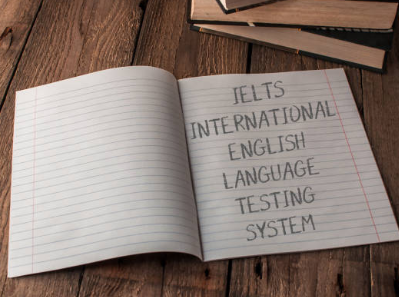 IELTS
INTERNATIONAL
ENGLISH
LANGUAGE
TESTING
SYSTEM